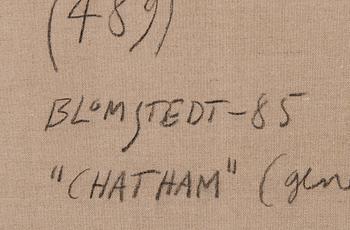 (489)
BLOMSTEDT-85
"CHATHAM" (gen